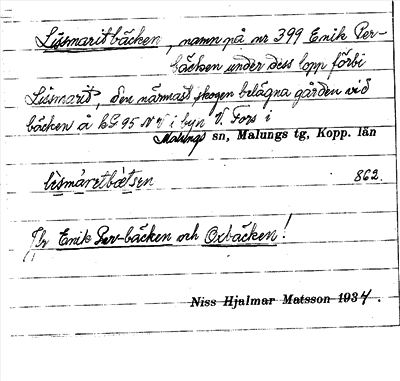 Lissmaritbäcken, namn på nr 399 Enik Per-
bäcken under dess lopp förbi
Lissmarit, den närmast skogen belägna gården vid
bäcken å LG 95 NV i byn V. Fors i
Malungs sn, Malungs tg, Kopp. län
lìsmáretbètsen 862.
Jfr Enik Per-bäcken och Oxbäcken!
Niss Hjalmar Matsson 1934.